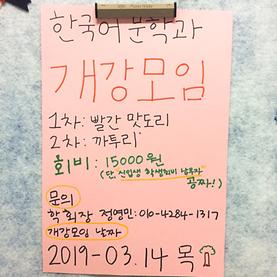 한국어 문학과
개강모임
1차: 빨간 맛도리
2차: 까투리
회비: 15000원
(단, 신입생 학생회비 납부자 공짜!)
문의
학회장 정영민: 010-4284-1317
개강모임 날짜
2019-03.14 목